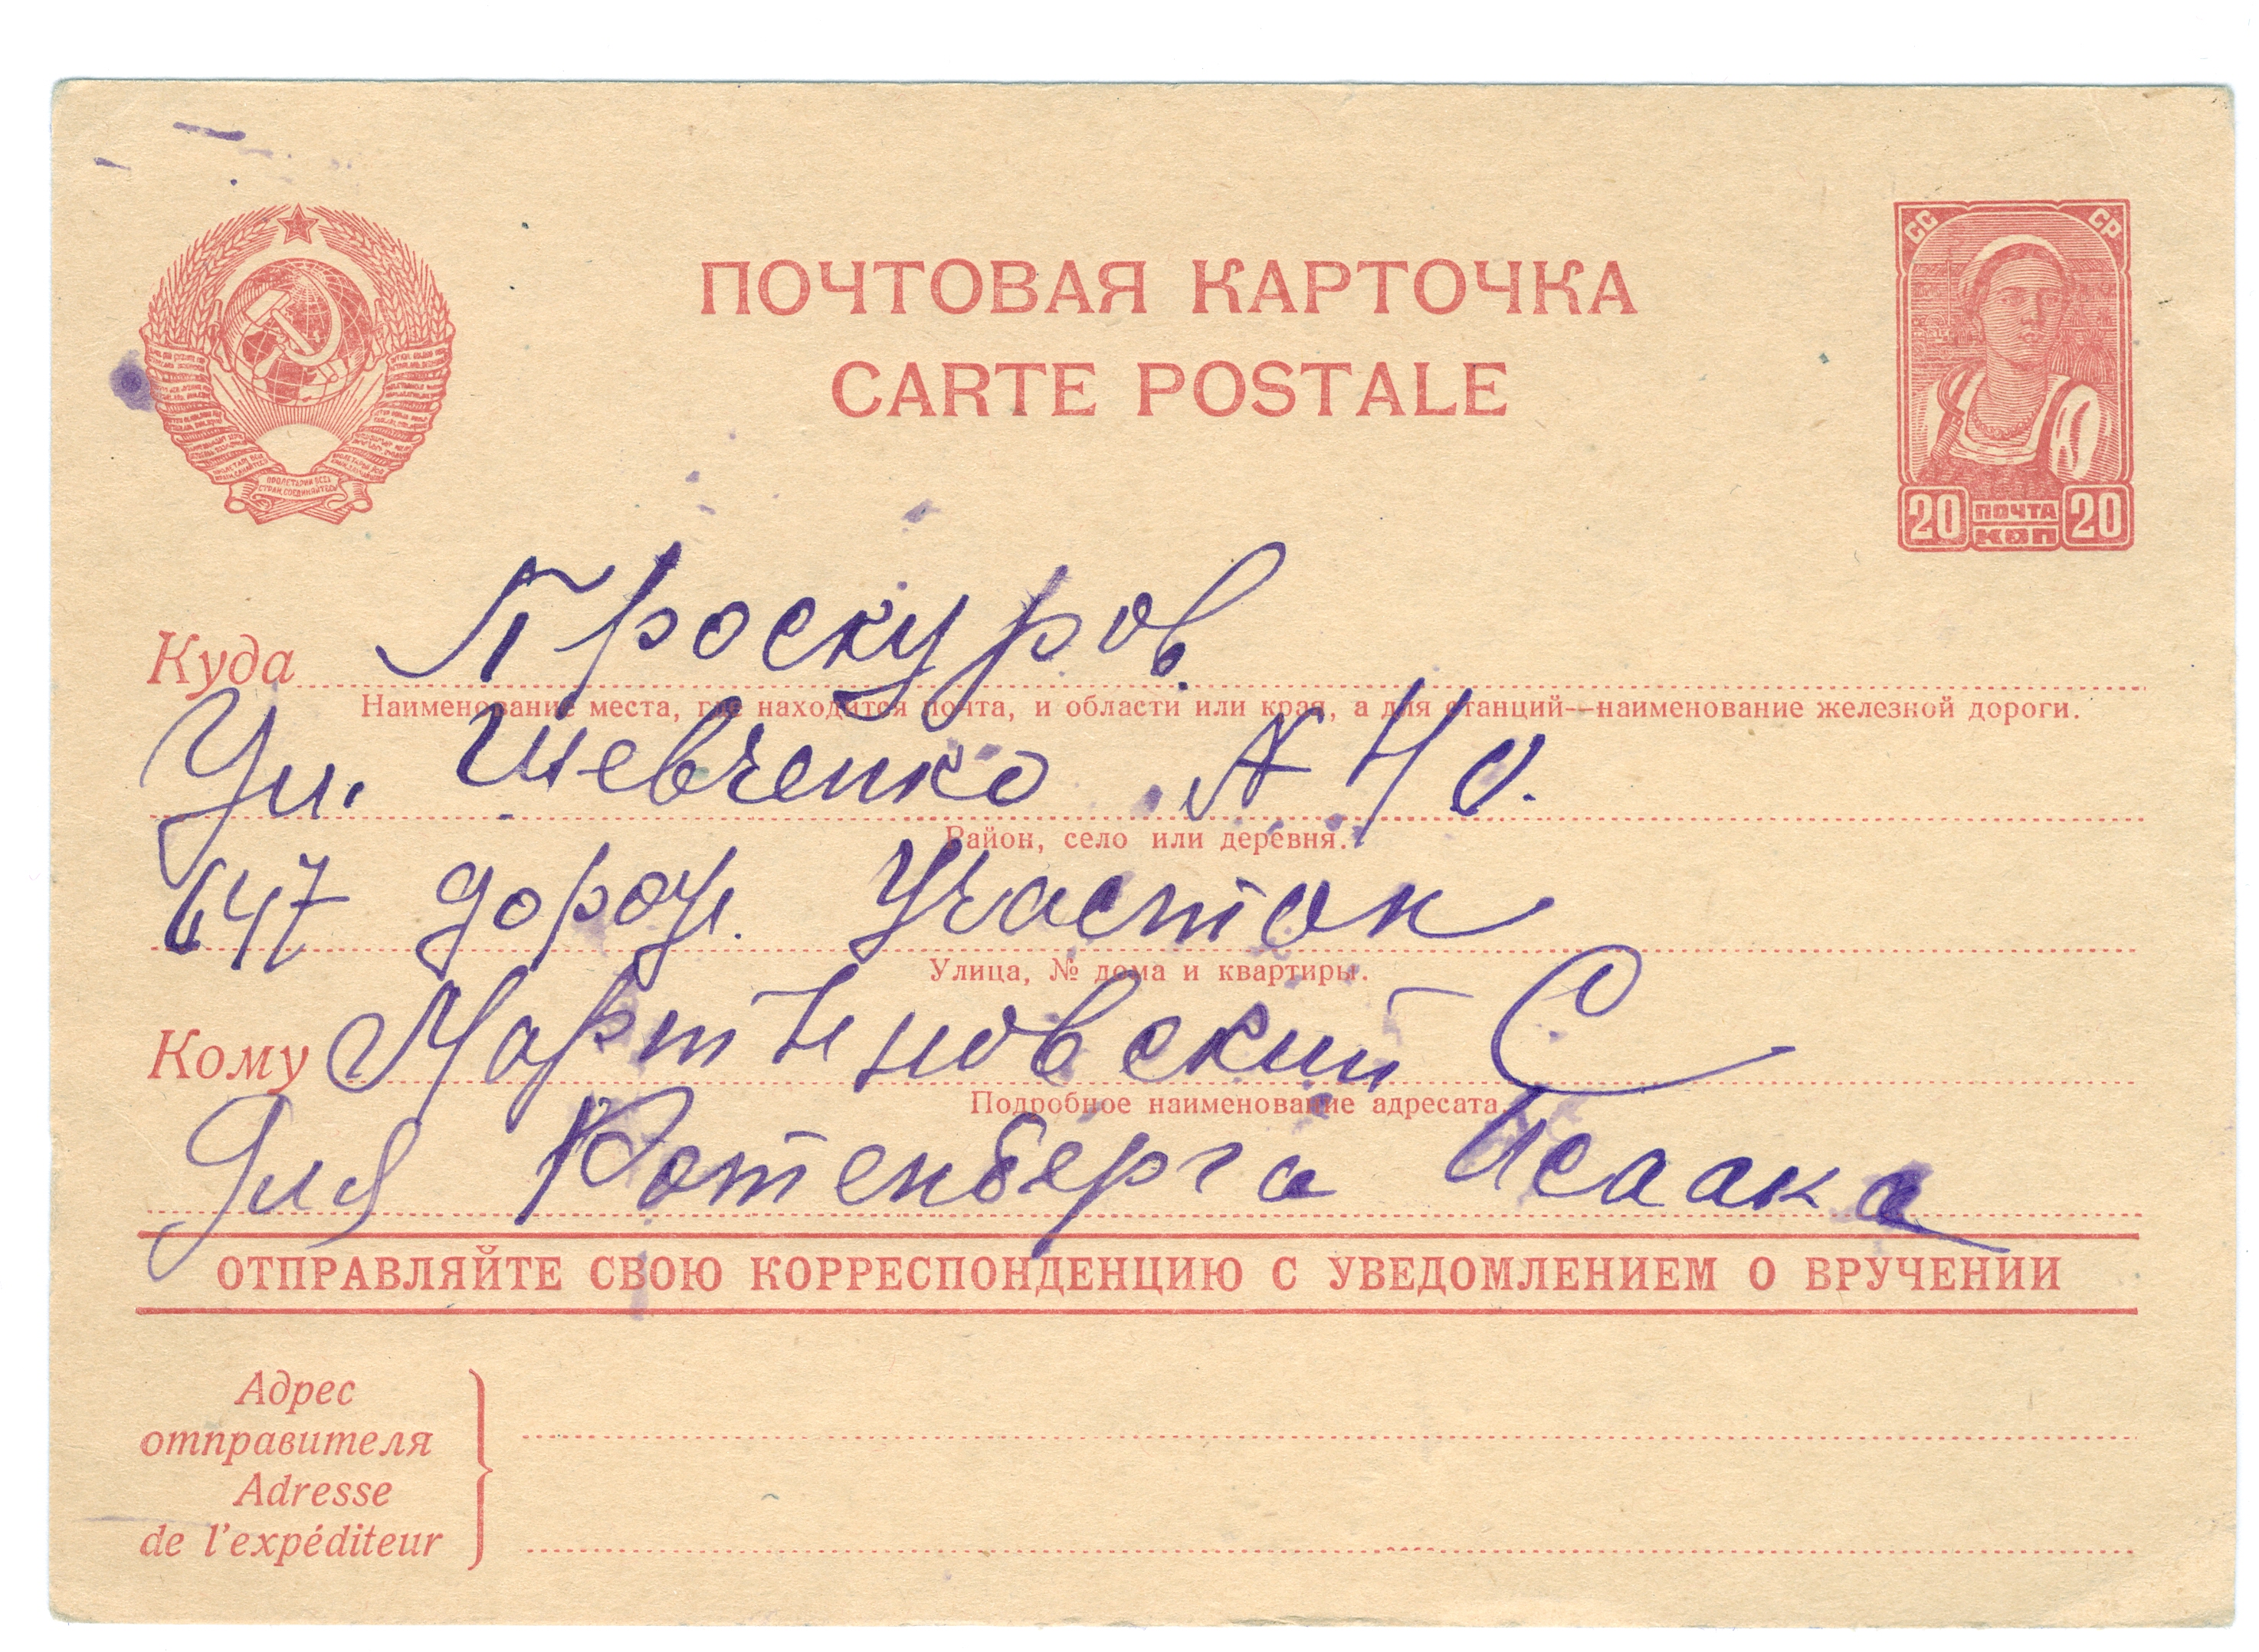 ПОЧТОВАЯ КАРТОЧКА
CARTE POSTALE
СС СР
20 ПОЧТА КОП 20
ПРОЛЕТАРИИ ВСЕХ
СТРАН, СОЕДИНЯЙТЕСЬ
Куда Проскуров
Наименование места, где находится почта, и области или края, а для станций—наименование железной дороги.
Ул. Шевченко № 40.
Район, село или деревня.
647 дорож. Участок
Улица, № дома и квартиры.
Кому Мартыновский С
Подробное наименование адресата.
Для Ротенберга Исаака
ОТПРАВЛЯЙТЕ СВОЮ КОРРЕСПОНДЕНЦИЮ С УВЕДОМЛЕНИЕМ О ВРУЧЕНИИ
Адрес
отправителя
Adresse
de l'expéditeur